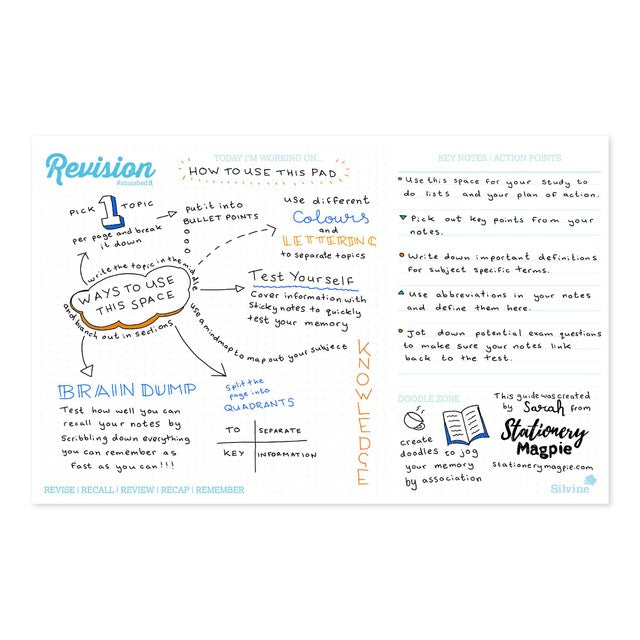 Revision
#smashedit
TODAY I'M WORKING ON...
HOW TO USE THIS PAD
PICK 1 TOPIC
per page and break
it down
put it into
BULLET POINTS
use different
Colours
and
LETTERING
to separate topics
write the topic in the middle
WAYS TO USE
THIS SPACE
and branch out in sections
use a mindmap to map out your subject
Test Yourself
Cover information with
sticky notes to quickly
test your memory
KNOWLEDGE
BRAIN DUMP
Test how well you can
recall your notes by
scribbling down everything
you can remember as
fast as you can!!!
Split the
page into
QUADRANTS
TO SEPARATE
KEY INFORMATION
REVISE | RECALL | REVIEW | RECAP | REMEMBER
KEY NOTES | ACTION POINTS
Use this space for your study to
do lists and your plan of action.
Pick out key points from your
notes.
Write down important definitions
for subject specific terms.
Use abbreviations in your notes
and define them here.
Jot down potential exam questions
to make sure your notes link
back to the test.
DOODLE ZONE
create
doodles to jog
your memory
by association
This guide was created
by Sarah from
Stationery
Magpie
stationerymagpie.com
Silvine